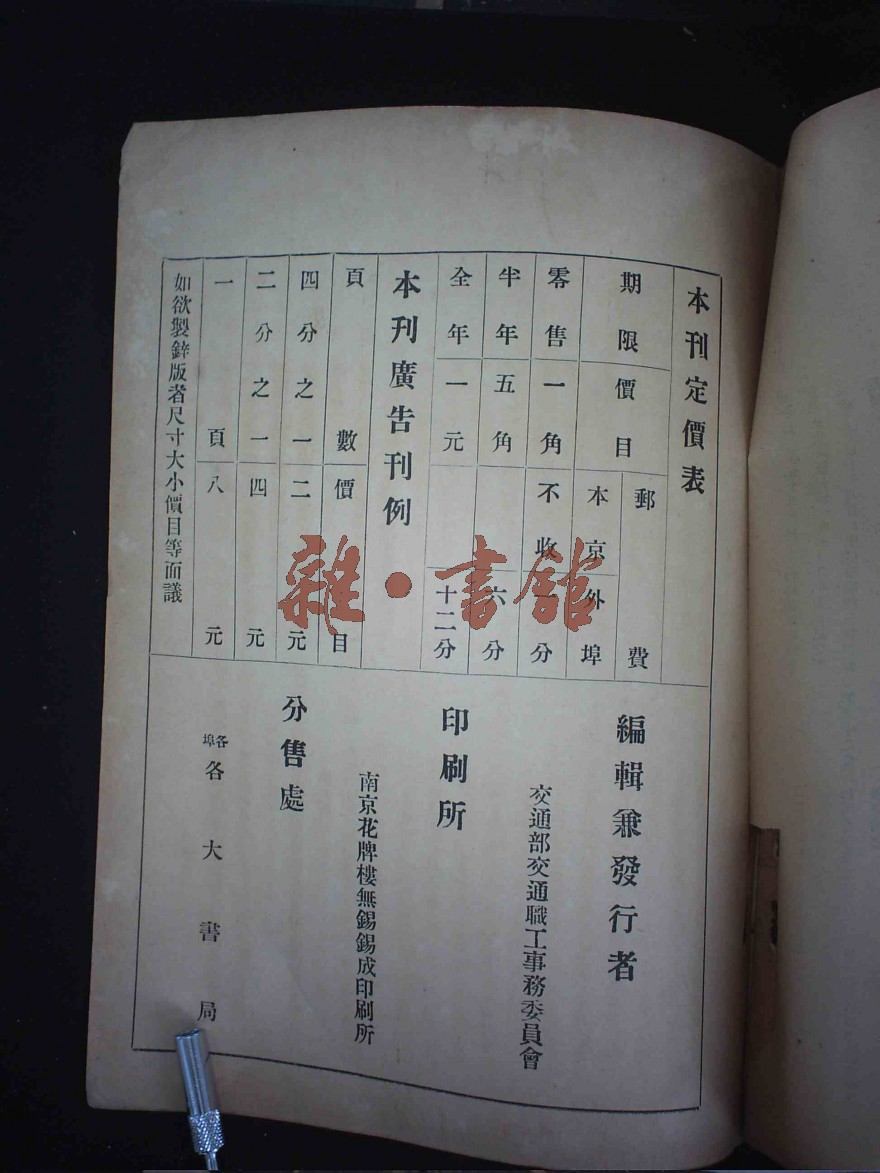 本刊定價表
期限 價目 郵費
本京 外埠
零售 一角 不收 一分
半年 五角 六分
全年 一元 十二分
本刊廣告刊例
頁數 價目
四分之一 二元
二分之一 四元
一頁 八元
如欲製鋅版者尺寸大小價目等面議
編輯兼發行者
交通部交通職工事務委員會
印刷所
南京花牌樓無錫錫成印刷所
分售處
各埠各大書局
雜·書館